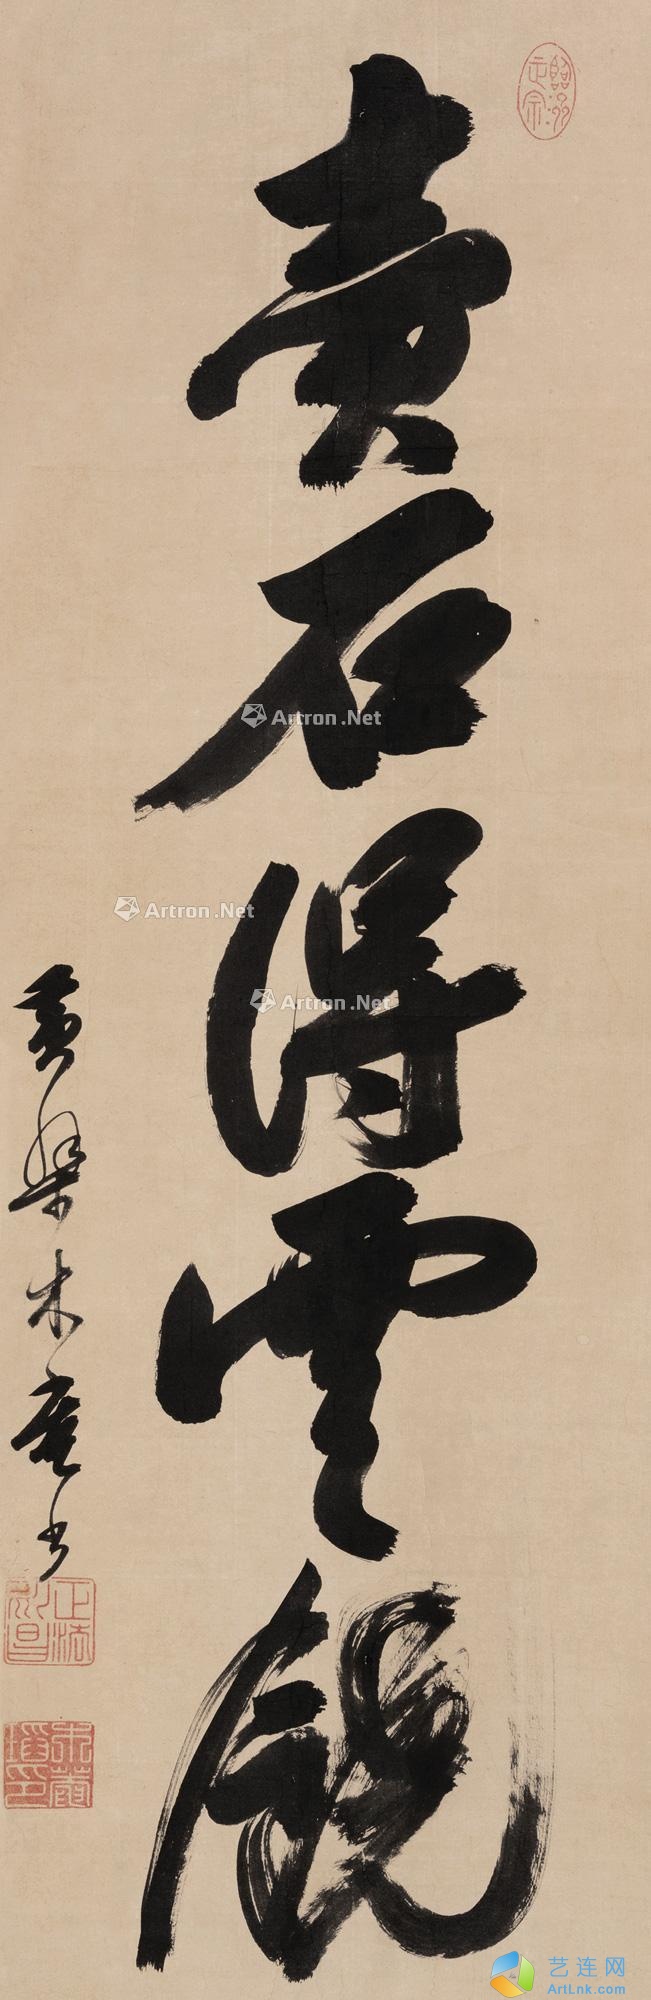 臨濟正宗
賣石得雲饒
黃檗木菴書
Artron.Net
Artron.Net
Artron.Net
艺连网
ArtLnk.com